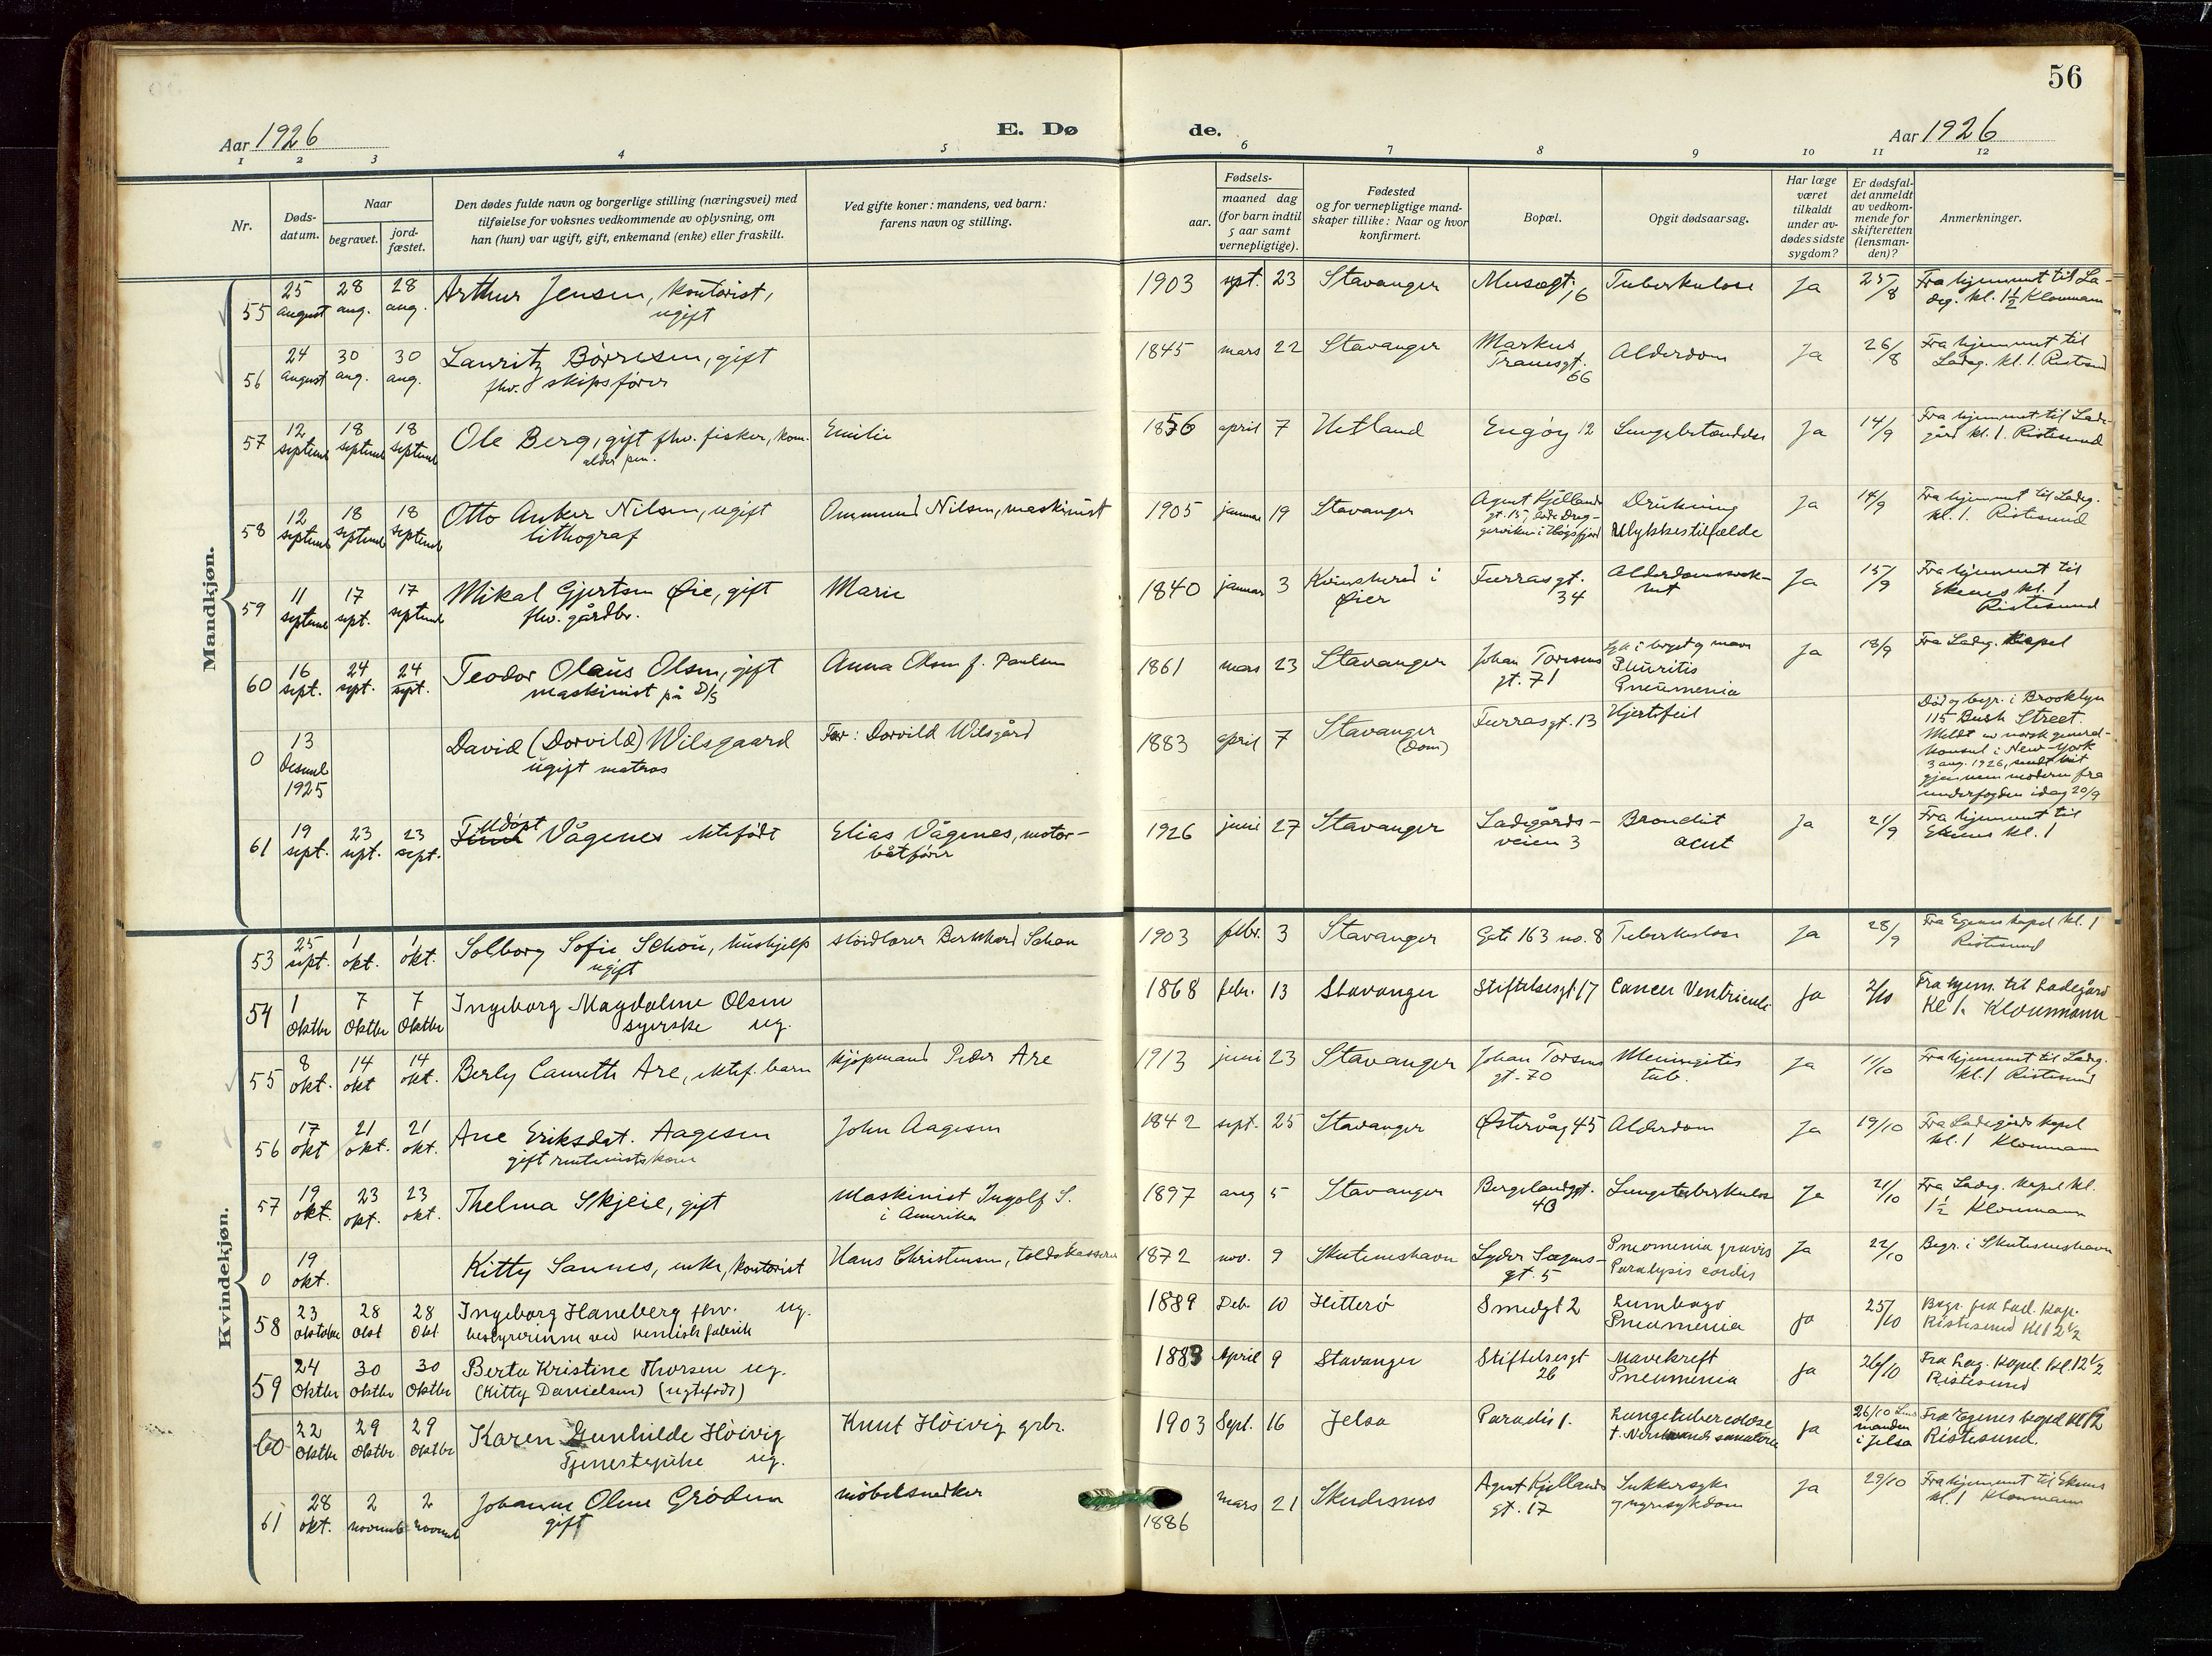 56
Aar 1926
E. Dø
de.
Aar 1926
1 2 3 4 5 6 7 8 9 10 11 12
Nr.
Døds-
datum.
Naar
begravet.
jord-
fæstet.
Den dødes fulde navn og borgerlige stilling (næringsvei) med
tilføielse for voksnes vedkommende av oplysning, om
han (hun) var ugift, gift, enkemand (enke) eller fraskilt.
Ved gifte koner: mandens, ved barn:
farens navn og stilling.
Fødsels-
aar.
maaned dag
(for barn indtil
5 aar samt
vernepligtige).
Fødested
og for vernepligtige mand-
skaper tillike: Naar og hvor
konfirmert.
Bopæl.
Opgit dødsaarsag.
Har læge
været
tilkaldt
under av-
dødes sidste
sygdom?
Er dødsfal-
det anmeldt
av vedkom-
mende for
skifteretten
(lensman-
den)?
Anmerkninger.
Mandkjøn.
55 25 august 28 aug. 28 aug. Arthur Jensen, kontorist, ugift 1903 sept. 23 Stavanger Musegt. 16 Tuberkulose Ja 25/8 Fra hjemmet til La-
deg. kl. 1½ Kloumann
56 24 august 30 aug. 30 aug. Lauritz Børresen, gift
fhv. skipsfører 1845 mars 22 Stavanger Markus Tranesgt. 66 Alderdom Ja 26/8 Fra hjemmet til
Ladeg. kl. 1. Ristesund
57 12 septemb 18 septemb 18 septemb Ole Berg, gift fhv. fisker, kom.
alder pen. Emilie 1856 april 7 Hetland Engøy 12 Lungebetændelse Ja 14/9 Fra hjemmet til Lade-
gård kl. 1. Ristesund
58 12 septemb 18 septemb 18 septemb Otto Anker Nilsen, ugift
lithograf Ommund Nilsen, maskinist 1905 januar 19 Stavanger Agent Kjellands
gt. 15, i Høgsfjord Drukning
Ulykkestilfælde Ja 14/9 Fra hjemmet til Ladeg.
kl. 1. Ristesund
59 11 septemb 17 sept. 17 septemb Mikal Gjertsen Øie, gift
fhv. gårdbr. Marie 1840 januar 3 Kvinesherred i
Øier Furrasgt. 34 Ja 15/9 Fra hjemmet til
Ekenes kl. 1
Ristesund
60 16 sept. 24 sept. 24 sept. Teodor Olaus Olsen, gift
maskinist på D/S Anna Olsen f. Paulsen 1861 mars 23 Stavanger Johan Torsens
gt. 71 i bryst og mave
Pleuritis
Pneumonia Ja 18/9 Fra Ladeg. Kapel
0 13 Desemb 1925 David (Dorvild) Wilsgaard
ugift matros Far: Dorvild Wilsgård 1883 april 7 Stavanger
(Dom) Furrasgt. 13 Hjertefeil Død og begr. i Brooklyn
115 Bush Street.
Meldt av norsk general-
konsul i New-York
3 aug. 1926, sendt hit
gjennem moderen fra
underfogden idag 20/9
61 19 sept. 23 sept. 23 sept. Udøpt Vågenes ektefødt Elias Vågenes, motor-
båtfører 1926 juni 27 Stavanger Ladegårds-
veien 3 Bronchit
acut Ja 21/9 Fra hjemmet til
Ekenes kl. 1
Kvindekjøn.
53 25 sept. 1 okt. 1 okt. Solborg Sofie Schou, hushjelp
ugift sløidlærer Berkhard Schou 1903 febr. 3 Stavanger Gate 163 no. 8 Tuberkulose Ja 28/9 Fra Egenes kapel kl. 1
Ristesund
54 1 Oktbr 7 Oktbr 7 Oktbr Ingeborg Magdalene Olsen
syerske ug. 1868 febr. 13 Stavanger Stiftelsesgt 17 Cancer Ventriculi Ja 2/10 Fra hjem. til Ladegård
Kl 1. Kloumann
55 8 okt. 14 okt 14 okt. Berly Camette Are, ektef. barn kjøpmand Peder Are 1913 juni 23 Stavanger Johan Torsens
gt. 70 Meningitis
tub. Ja 11/10 Fra hjemmet til Ladeg.
kl. 1 Ristesund
56 17 okt 21 okt. 21 okt. Ane Eriksdat. Aagesen
gift John Aagesen 1842 sept. 25 Stavanger Østervåg 45 Alderdom Ja 19/10 Fra Ladegårds kapel
kl. 1 Kloumann
57 19 okt. 23 okt. 23 okt. Thelma Skjeie, gift Maskinist Ingolf S.
i Amerika 1897 aug 5 Stavanger Bergelandsgt.
43 Lungetuberkulose Ja 21/10 Fra Ladeg. kapel kl.
1½ Kloumann
0 19 okt. Kitty Sannes, enke, kontorist Hans Christensen, toldkasserer 1872 nov. 9 Skuteneshavn Lyder Sagens-
gt. 5 Pneomenia gravis
Paralysis cordis Ja 22/10 Begr. i Skuteneshavn
58 23 Oktober 28 Okt 28 Okt Ingeborg Haneberg fhv. ug.
bestyrerinne ved kemisk fabrik 1889 Deb. 10 Hitterø Smedgt 2 Lumbago
Pneumenia Ja 25/10 Begr. fra Lad. Kap.
Ristesund Kl 12½
59 24 Oktbr 30 Oktbr 30 Oktbr Berta Kristine Thorsen ug.
(Kitty Danielsen) (ugtefødt) 1883 April 9 Stavanger Stiftelsesgt
26 Mavekreft
Pneumenia Ja 26/10 Fra Lag. Kapel. Kl. 12½
Ristesund
60 22 Oktbr 29 Oktbr 29 Oktbr Karen Gunhilde Høivig
Tjenestepike ug. Knut Høivig grbr. 1903 Sept. 16 Jelsa Paradis 1. Lungetubercolose Ja 26/10 Lens
manden
i Jelsa Fra Egenes kapel Kl 12
Ristesund.
61 28 okt. 2 novemb 2 novemb Johanne Oline Grødem
gift møbelsnedker 1886 mars 21 Skudesnes Agent Kjellands
gt. 17 Sukkersyke
og nyresykdom Ja 29/10 Fra hjemmet til Ekenes
kl. 1 Kloumann